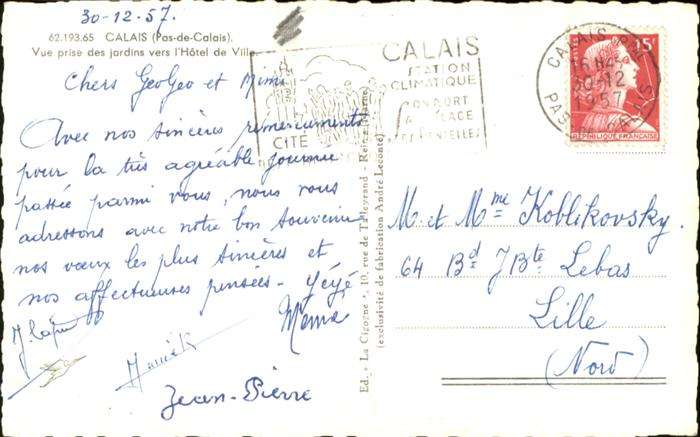 30-12-57.
62.193.65 CALAIS (Pas-de-Calais).
Vue prise des jardins vers l'Hôtel de Ville.
Chers GeoGeo et Mimi
Avec nos sincères remerciements
pour la très agréable journée
passée parmi vous, nous vous
adressons avec notre bon souvenir
nos vœux les plus sincères et
nos affectueuses pensées - Yéyé
Mémé
Jean-Pierre
Ed. "La Cigogne", 10, rue de Reims
(exclusivité de fabrication André Leconte)
CITÉ
CALAIS
STATION
CLIMATIQUE
CALAIS
16 H
30-12
1957
PAS DE CALAIS
15F
REPUBLIQUE FRANÇAISE
M. et Mme Koblikovsky.
64 Bd J Bte Lebas
Lille
(Nord)